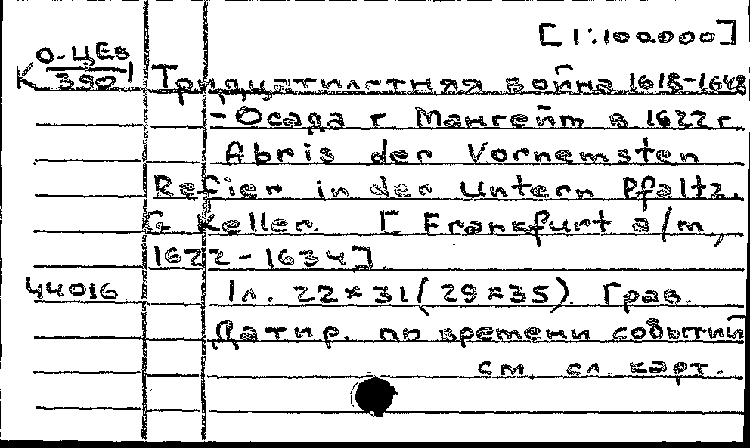 [1:100.000]
К О-ЦЕв
3901 Тридцатилетняя война 1618-1648
- Осада г. Мангейм в 1622 г.
Abris der Vornemsten
Refier in der Untern Pfaltz.
G. Keller. [Frankfurt a/m,
1622-1634]
44016 1 л. 22×31 (29×35). Грав.
Датир. по времени событий
см. сл. карт.